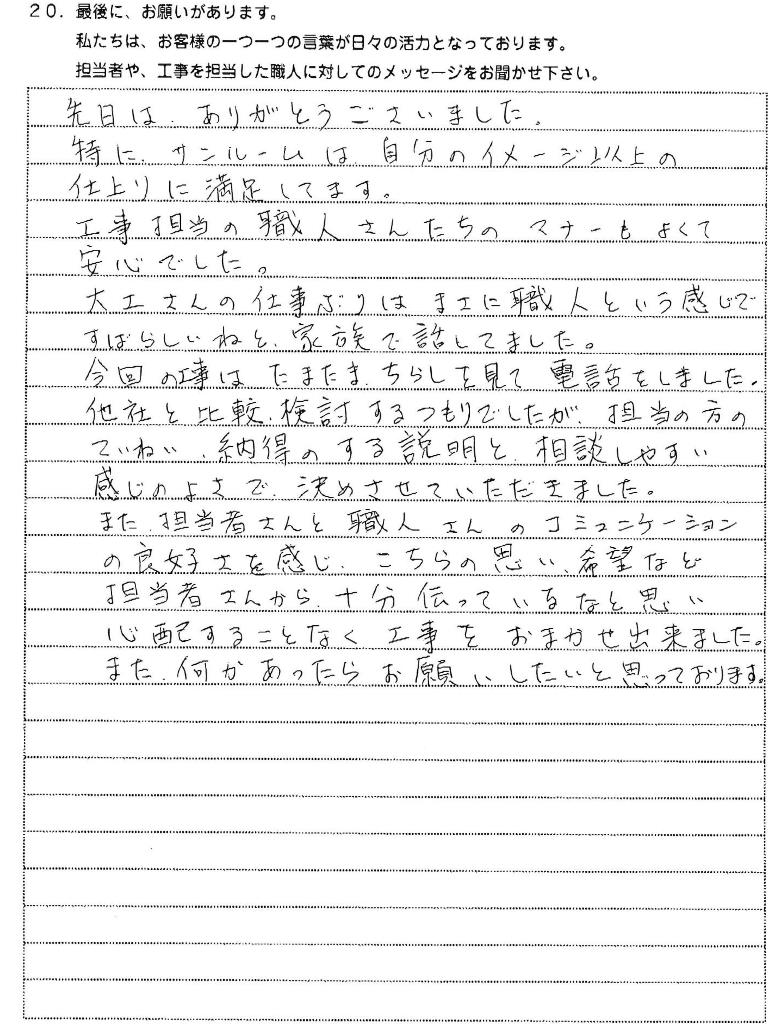 20．最後に、お願いがあります。
私たちは、お客様の一つ一つの言葉が日々の活力となっております。
担当者や、工事を担当した職人に対してのメッセージをお聞かせ下さい。
先日は、ありがとうございました。
特に、サンルームは、自分のイメージ以上の
仕上りに満足してます。
工事担当の職人さんたちの マナーもよくて
安心でした。
大工さんの仕事ぶりは まさに職人という感じで
すばらしいねと、家族で話してました。
今回の工事は たまたま、ちらしを見て 電話をしました。
他社と比較、検討するつもりでしたが、担当の方の
ていねい、納得のする説明と、相談しやすい
感じのよさで、決めさせていただきました。
また、担当者さんと職人さんのコミュニケーション
の良好さを感じ、こちらの思い、希望など
担当者さんから、十分伝っているなと思い
心配することなく工事をおまかせ出来ました。
また、何かあったらお願いしたいと思っております。